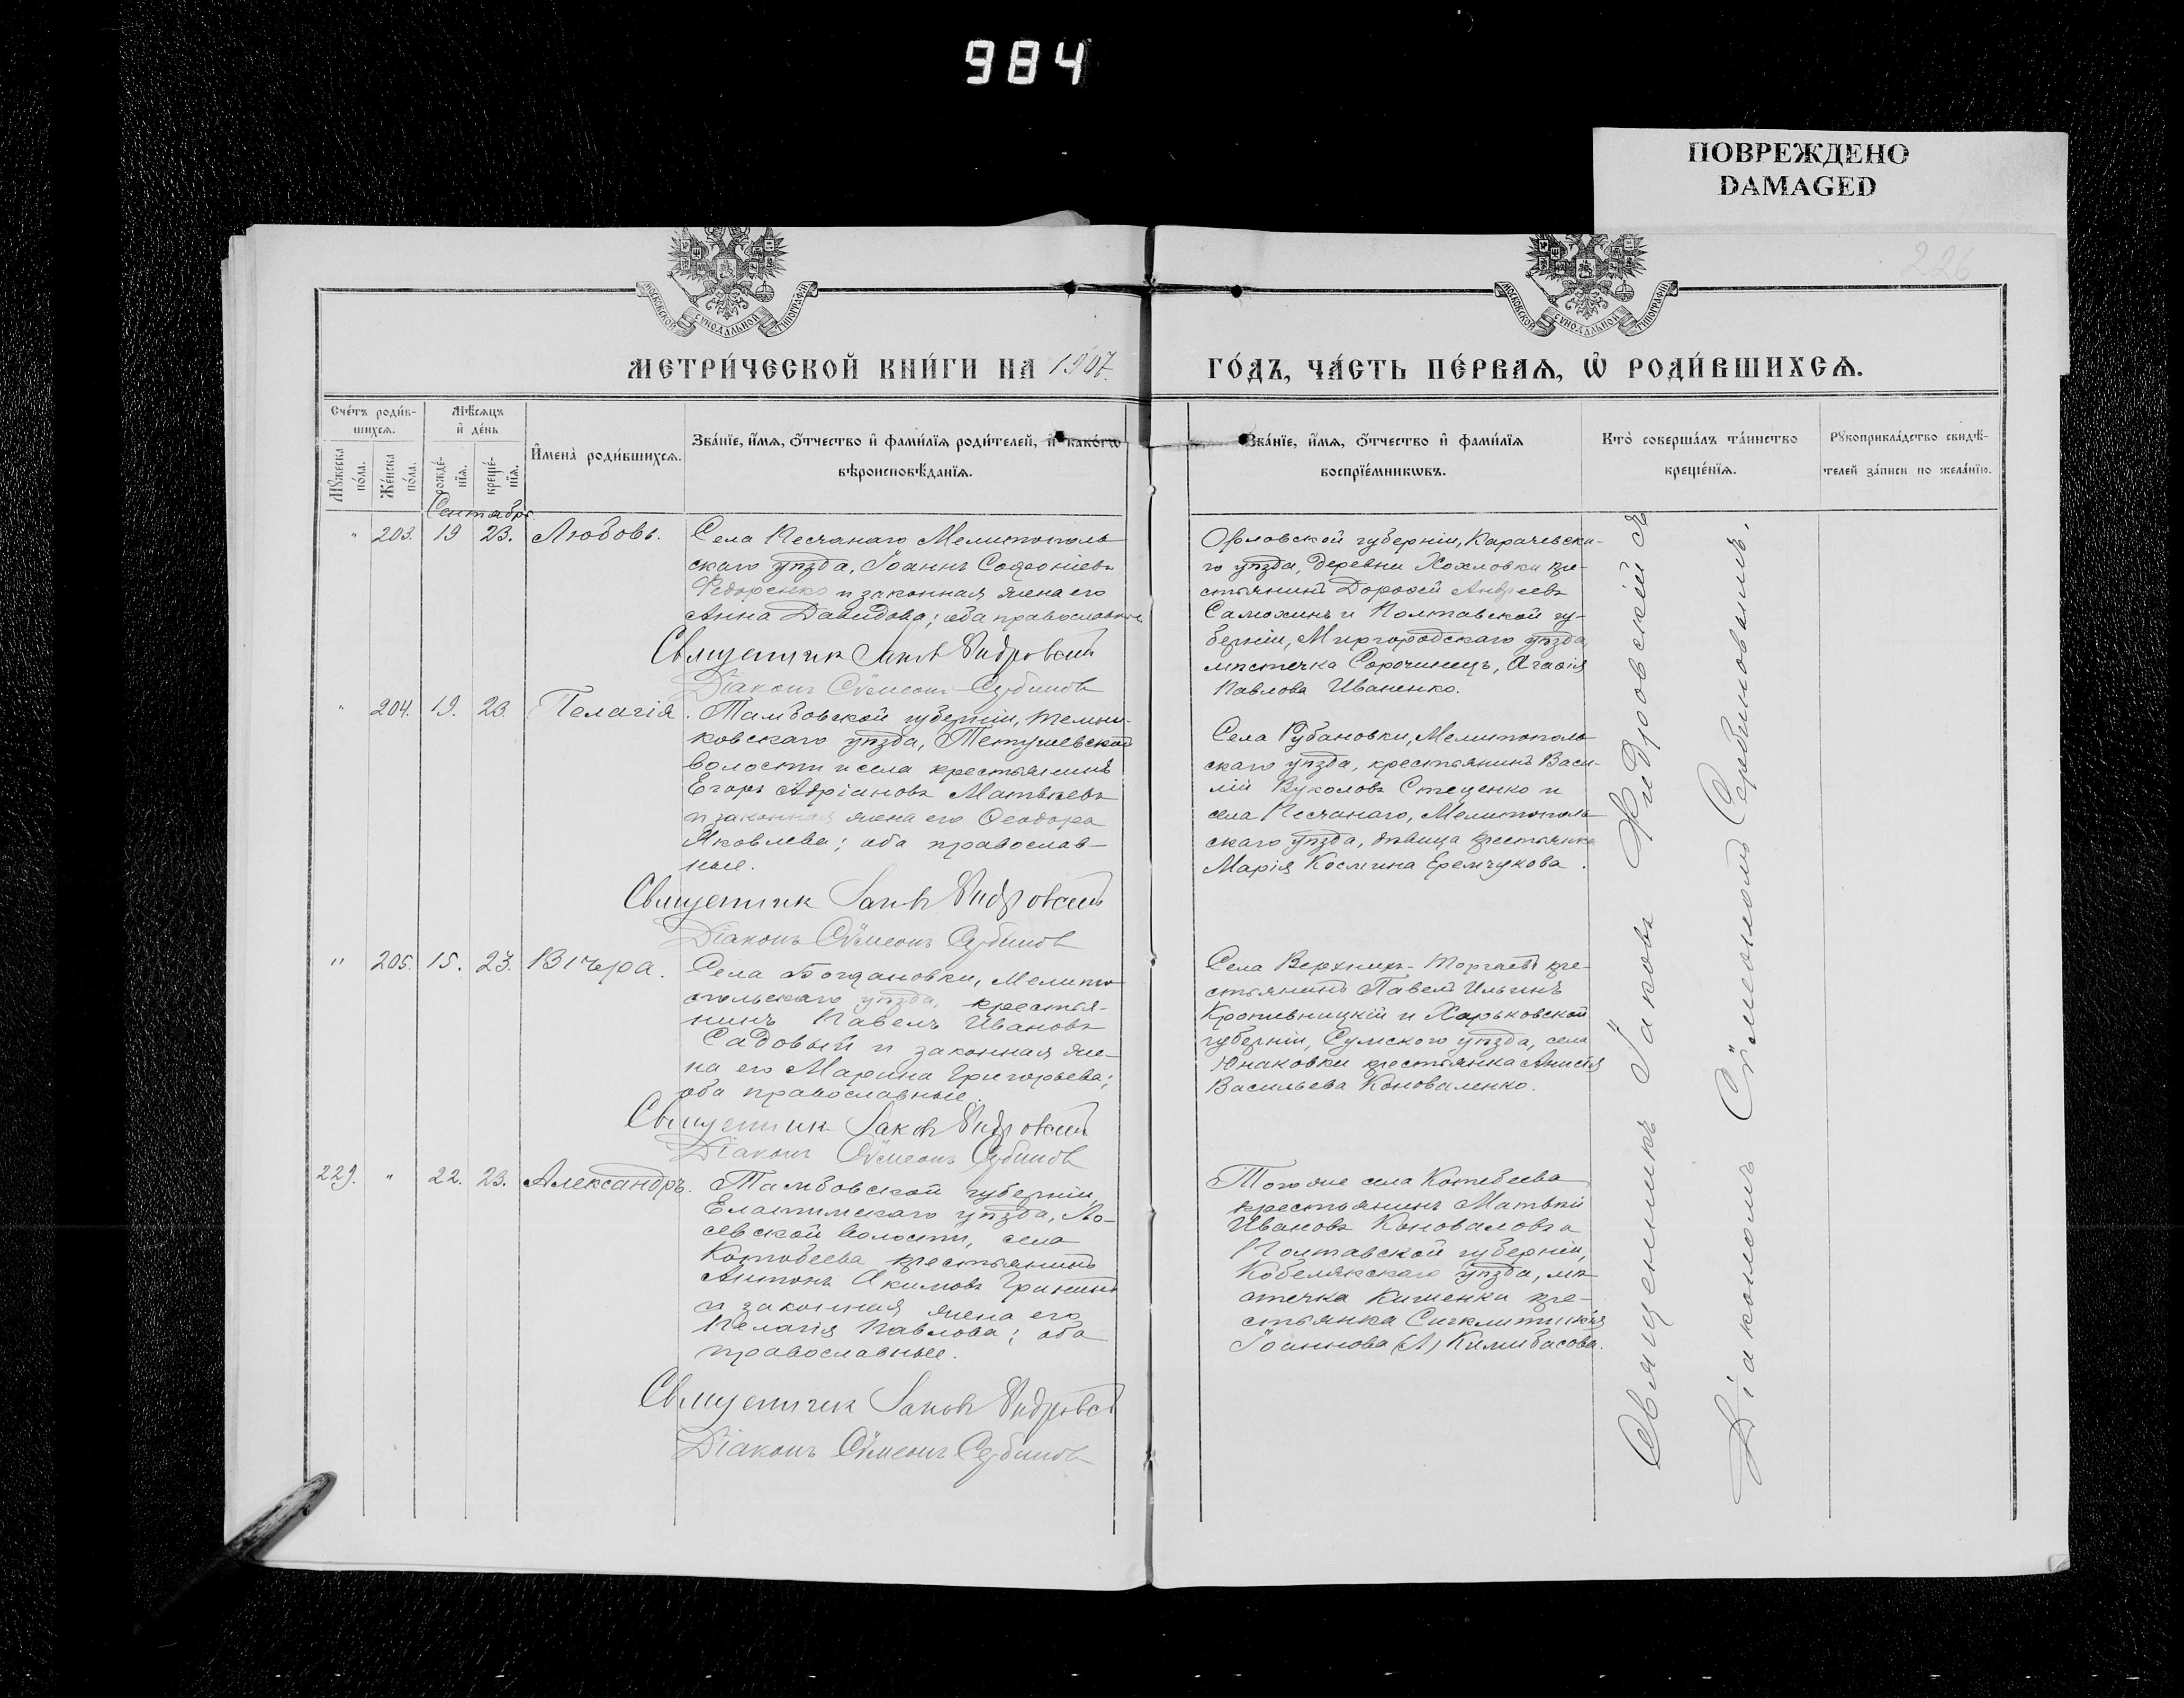 984
ПОВРЕЖДЕНО
DAMAGED
226
МОСКОВСКОЙ СѴНОДАЛЬНОЙ ТИПОГРАФІИ
МОСКОВСКОЙ СѴНОДАЛЬНОЙ ТИПОГРАФІИ
МЕТРИ́ЧЕСКОЙ КНИ́ГИ НА 1907.
ГО́ДЪ, ЧА́СТЬ ПЕ́РВАѦ, Ѡ҆ РОДИ́ВШИХСѦ.
Сче́тъ роди́в-
шихсѧ.
Мꙋ́жеска по́ла.
Же́нска по́ла.
Мѣ́сѧцъ
и҆ де́нь
рожде́-
нїѧ.
креще́-
нїѧ.
И҆мена̀ роди́вшихсѧ.
Зва́нїе, и҆́мѧ, ѻ҆́тчество и҆ фами́лїѧ роди́телей, и҆ како́гѡ
вѣроисповѣ́данїѧ.
Зва́нїе, и҆́мѧ, ѻ҆́тчество и҆ фами́лїѧ
воспрїе́мникѡвъ.
Кто̀ соверша́лъ та́инство
креще́нїѧ.
Рꙋкоприкла́дство свидѣ́-
телей за́писи по жела́нїю.
Сентябрь
" 203. 19 23. Любовь.
Села Песчанаго Мелитополь
скаго уѣзда, Іоаннъ Софоніевъ
Федоренко и законная жена его
Анна Давидова; оба православные
Священник Іаков Жидровский
Діаконъ Сѵмеонъ Сербинов
Орловской губерніи, Карачевска-
го уѣзда, деревни Хохловки кре-
стьянинъ Дорофей Андреевъ
Самохинъ и Полтавской гу-
берніи, Миргородскаго уѣзда
мѣстечка Сорочинецъ, Агафія
Павлова Иваненко.
" 204. 19. 23. Пелагія.
Тамбовской губерніи, Темни-
ковскаго уѣзда,
волости и села крестьянинъ
Егоръ Адріановъ Матвѣевъ
и законная жена его Ѳеодора
Яковлева; оба православ-
ные.
Священник Іаков Жидровский
Діаконъ Сѵмеонъ Сербинов
Села Рубановки, Мелитополь
скаго уѣзда, крестьянинъ Васи-
лій Вуколовъ Стеценко и
села Песчанаго, Мелитополь
скаго уѣзда, дѣвица крестьянка
Марія Космина Еремчукова.
" 205. 15. 23. Вѣра.
Села Богдановки, Мелито
польскаго уѣзда, крестья-
нинъ Павелъ Ивановъ
Садовый и законная же-
на его Марина Григорьева;
оба православные.
Священник Іаков Жидровский
Діаконъ Сѵмеонъ Сербинов
Села Верхнихъ-Торгаевъ кре-
стьянинъ Павелъ Ильинъ
Кропивницкій и Харьковской
губерніи, Сумского уѣзда, села
Юнаковки крестьянка Анисія
Васильева Коноваленко.
229. " 22. 23. Александръ.
Тамбовской губерніи,
Елатимскаго уѣзда,
севской волости, села
Котобеева крестьянинъ
Антонъ Акимовъ
и законная жена его
Пелагія Павлова; оба
православные.
Священник Іаков Жидровск
Діаконъ Сѵмеонъ Сербинов
Того же села Котебеева
крестьянинъ Матвѣй
Ивановъ Коноваловъ и
Полтавской губерніи,
Кобелякскаго уѣзда, мѣ
стечка Кишенки кре-
стьянка Сигклитикія
Іоаннова (А) Килибасова.
Священникъ Іаковъ Жидровскій съ
Діакономъ Сѵмеономъ Сербиновымъ.